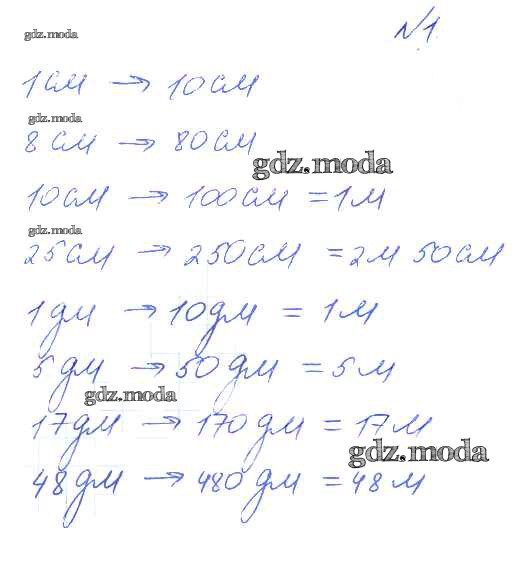 gdz.moda
№1.
1см → 10см
gdz.moda
8см → 80см
gdz.moda
10см → 100см = 1м
gdz.moda
25см → 250см = 2м 50см
1дм → 10дм = 1м
5дм → 50дм = 5м
gdz.moda
17дм → 170дм = 17м
gdz.moda
48дм → 480дм = 48м